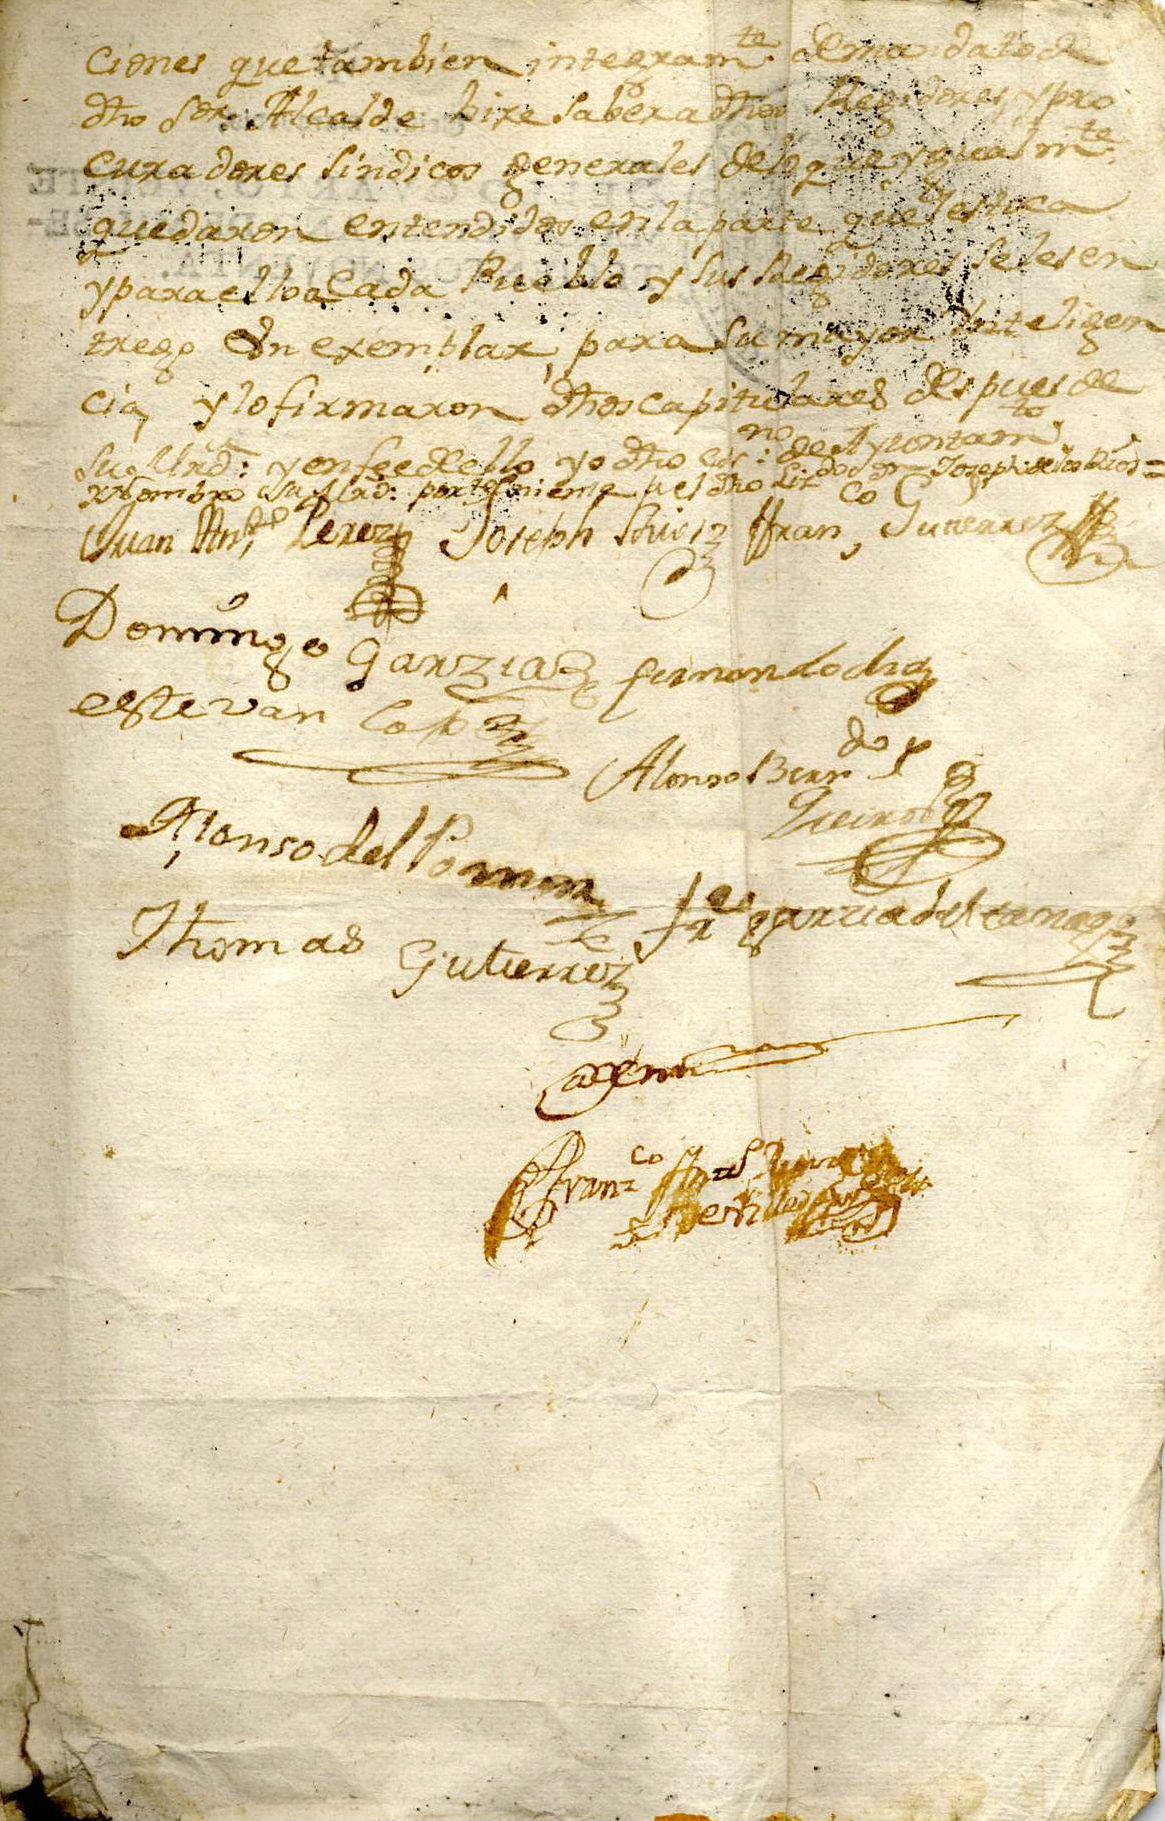 ciones que tambien integram.te demandato de
dho Sor. Alcalde hize saber a dhos Regidores, y pro
curadores sindicos generales de lo que ygualm.te
quedaron entendidos en la parte que les toca
y para ello a Cada Pueblo y sus Regidores se les en
trego Un exemplar, para su mayor Inteligen
cia, y lo firmaron dhos capitulares despues de
su Mrd: y en fee de ello yo dho es.no de Ayuntam.to
Juan Ant.o Perez Joseph Ruiz Fran.co Gutierrez
Domingo Garzia fernando diez
estevan Lopez
Alonso Bern.do
Alonso del
Thomas Gutierrez fr.co garcia del
ante mi
Franz.co